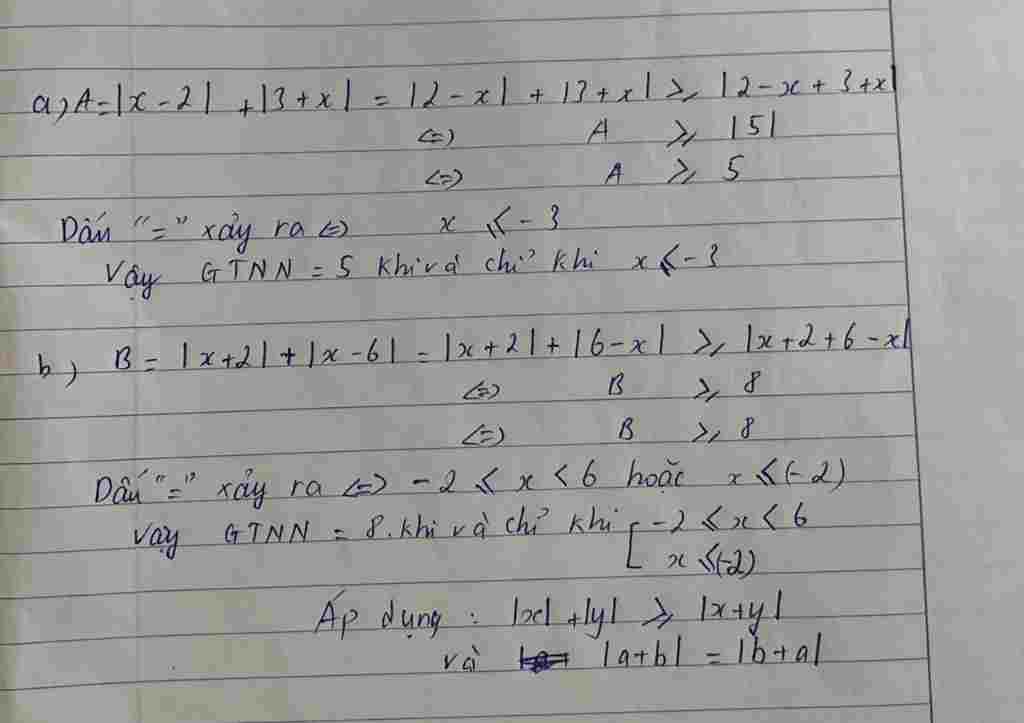 a, A = |x - 2| + |3 + x| = |2 - x| + |3 + x| ⩾ |2 - x + 3 + x|
<=> A ⩾ |5|
<=> A ⩾ 5
Dấu "=" xảy ra <=> x ⩽ - 3
Vậy GTNN = 5 khi và chỉ khi x ⩽ - 3
b, B = |x + 2| + |x - 6| = |x + 2| + |6 - x| ⩾ |x + 2 + 6 - x|
<=> B ⩾ 8
<=> B ⩾ 8
Dấu "=" xảy ra <=> - 2 ⩽ x < 6 hoặc x ⩽ (-2)
Vậy GTNN = 8. khi và chỉ khi [ - 2 ⩽ x < 6
x ⩽ (-2)
Áp dụng : |x| + |y| ⩾ |x + y|
và |a + b| = |b + a|